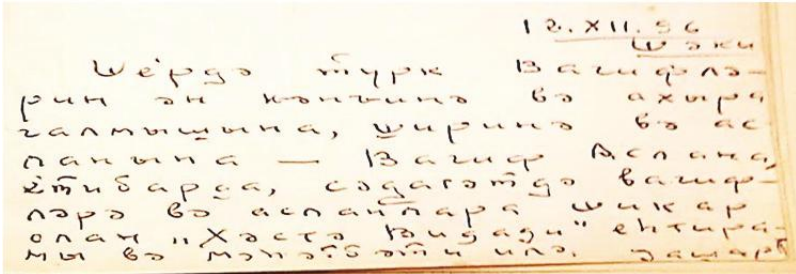 12.XII.96
Шәки
Шеʼрдә түрк Вагифлә-
рин ән кәнҹинә вә ахыра
галмышына, ширинә вә ас-
ланына — Вагиф Аслана,
еʼтибарда, сәдагәтдә вагиф-
ләрә вә асланлара шикар
олан „Хәстә Видади“ еһтира-
мы вә мәһәббәти илә.